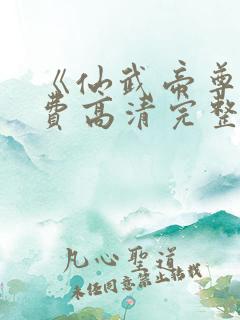 《仙武帝尊
费高清完整
凡心聖道
未经同意禁止转载